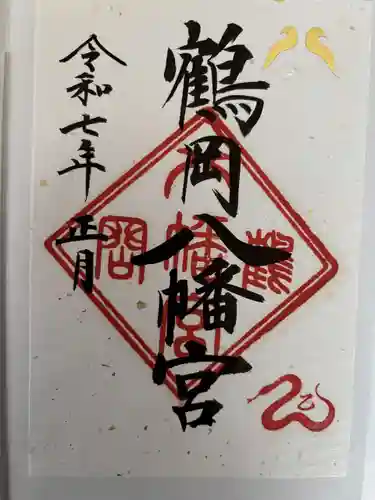 鶴岡八幡宮
令和七年 正月
鶴岡八幡宮
巳